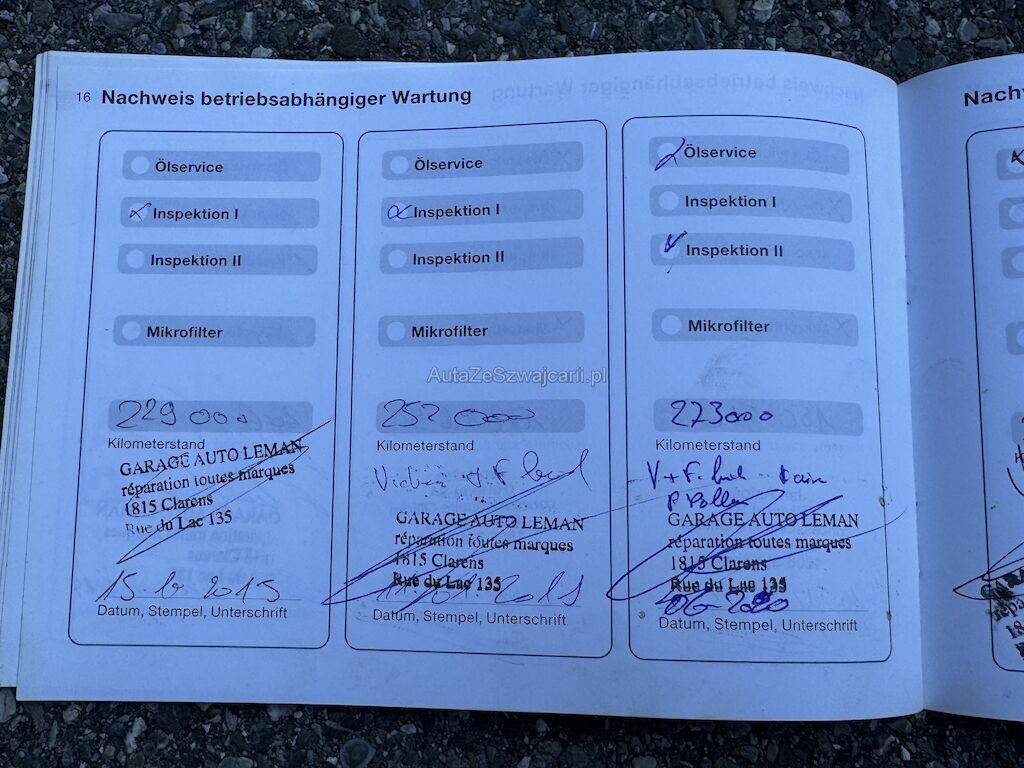 16 Nachweis betriebsabhängiger Wartung
Ölservice
Inspektion I
Inspektion II
Mikrofilter
229 000
Kilometerstand
GARAGE AUTO LEMAN
réparation toutes marques
1815 Clarens
Rue du Lac 135
2015
Datum, Stempel, Unterschrift
Ölservice
Inspektion I
Inspektion II
Mikrofilter
252 000
Kilometerstand
GARAGE AUTO LEMAN
réparation toutes marques
1815 Clarens
Rue du Lac 135
Datum, Stempel, Unterschrift
Ölservice
Inspektion I
Inspektion II
Mikrofilter
273000
Kilometerstand
GARAGE AUTO LEMAN
réparation toutes marques
1815 Clarens
Rue du Lac 135
Datum, Stempel, Unterschrift
Nach
AutaZeSzwajcarii.pl